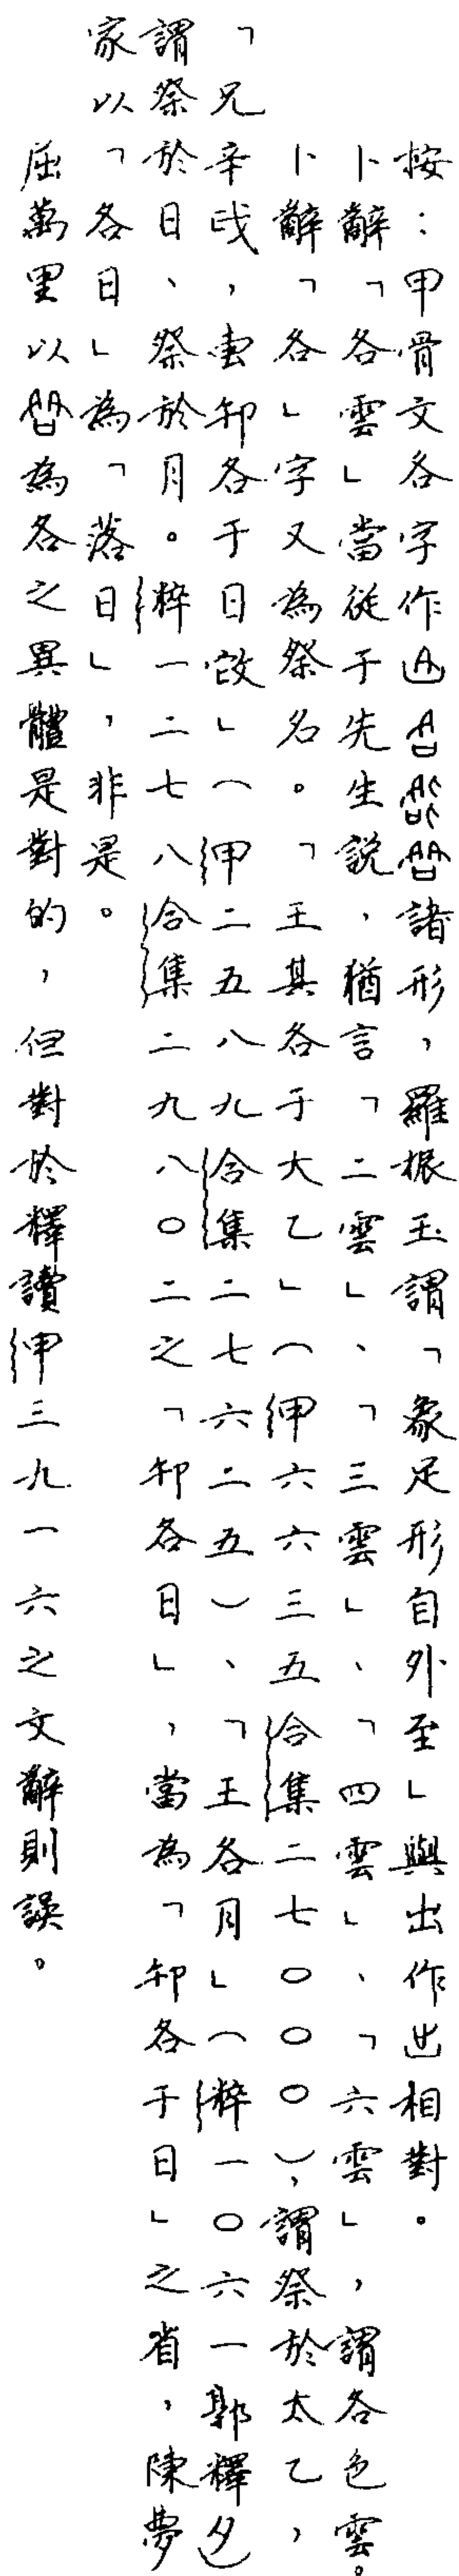 按：甲骨文各字作諸形，羅振玉謂「象足形自外至」與出作相對。
卜辭「各雲」當從于先生説，猶言「二雲」、「三雲」、「四雲」、「六雲」，謂各色雲。
卜辭「各」字又為祭名。「王其各于大乙」（甲六六三五合集二七〇〇〇），謂祭於太乙，
「兄辛戌，叀卸各于日改」（甲二五八九合集二七六二五）、「王各月」（粹一〇六一郭釋夕）
謂祭於日、祭於月。粹一二七八合集二九八〇二之「卸各日」，當為「卸各于日」之省，陳夢
家以「各日」為「落日」，非是。
屈萬里以為各之異體是對的，但對於釋讀甲三九一六之文辭則誤。